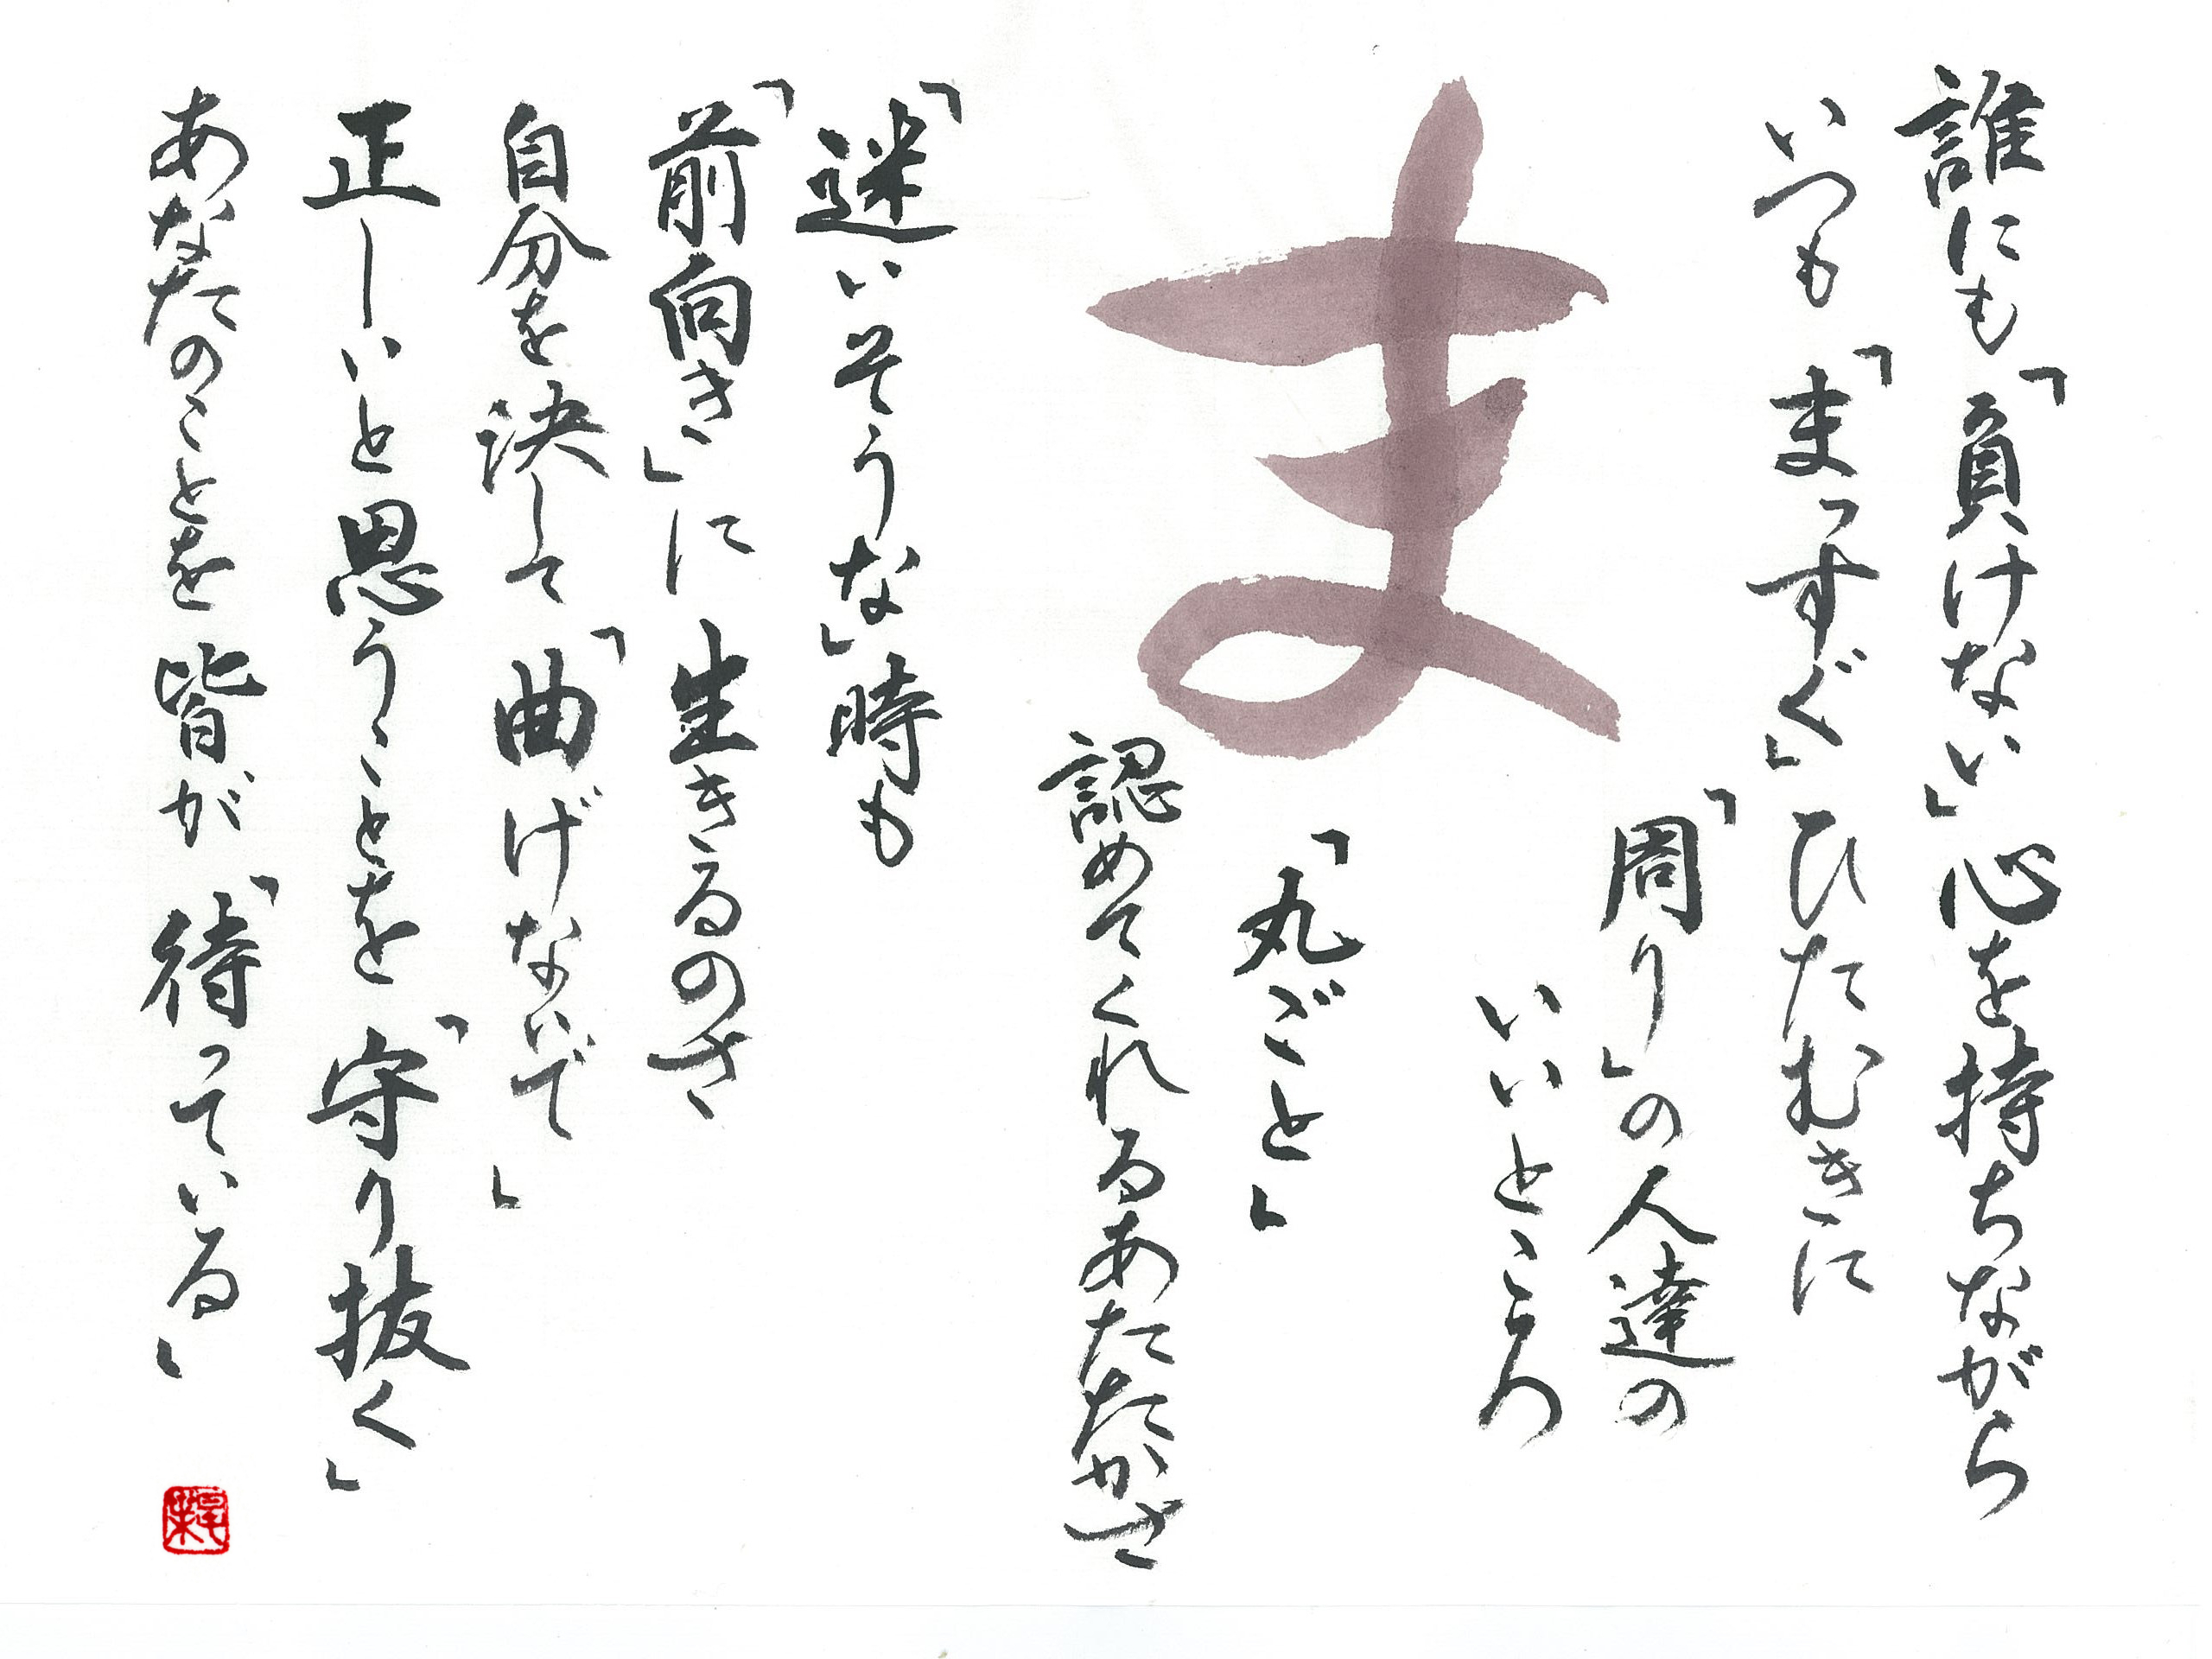 誰にも「負けない」心を持ちながら
いつも「まっすぐ」ひたむきに
「周り」の人達の
いいところ
ま
「丸ごと」
認めてくれるあたたかさ
「迷いそうな」時も
「前向き」に生きるのさ
自分を決して「曲げないで」
正しいと思うことを「守り抜く」
あなたのことを皆が「待っている」